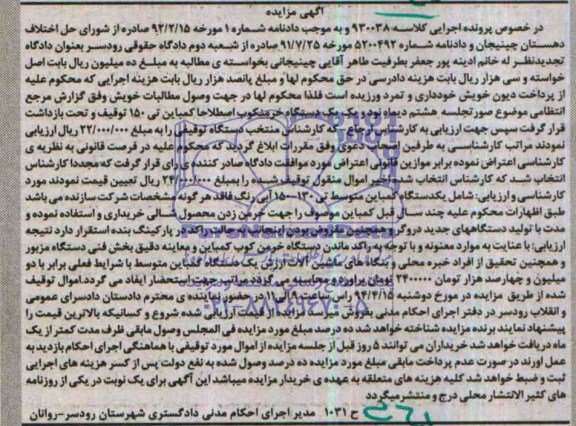 آگهی مزایده
در خصوص پرونده اجرایی کلاسه ۹۳۰۰۳۸ و به موجب دادنامه شماره ۱ مورخه ۹۲/۲/۱۵ صادره از شورای حل اختلاف
دهستان چینیجان و دادنامه شماره ۵۲۰۰۴۹۲ مورخه ۹۱/۷/۲۵ صادره از شعبه دوم دادگاه حقوقی رودسر بعنوان دادگاه
تجدیدنظر له خانم ادینه پور جعفر بطرفیت طاهر آقایی چینیجانی بخواسته ی مطالبه به مبلغ ده میلیون ریال بابت اصل
خواسته و سی هزار ریال بابت هزینه دادرسی در حق محکوم لها و مبلغ پانصد هزار ریال بابت هزینه اجرایی که محکوم علیه
از پرداخت دیون خویش خودداری و تمرد ورزیده است فلذا محکوم لها در جهت وصول مطالبات خویش وفق گزارش مرجع
انتظامی موضوع صورتجلسه هشتم دی ماه یک دستگاه خرمنکوب اصطلاحا کمباین تی ۱۵۰ توقیف و تحت بازداشت
قرار گرفت سپس جهت ارزیابی به کارشناس ارجاع که کارشناس منتخب دستگاه توقیفی را به مبلغ ۲۲/۰۰۰/۰۰۰ ریال ارزیابی
نمودند مراتب کارشناسی به طرفین اصحاب دعوی وفق مقررات ابلاغ گردید که محکوم علیه در فرصت قانونی به نظریه ی
کارشناسی اعتراض نموده برابر موازین قانونی اعتراض مورد موافقت دادگاه صادر کننده ی رای قرار گرفت که مجددا کارشناس
انتخاب شد که کارشناس انتخاب شده اخیر اموال منقول توقیف شده را بمبلغ ۲۴/۰۰۰/۰۰۰ ریال تبیین قیمت نمودند مورد
کارشناسی و ارزیابی: شامل یکدستگاه کمباین متوسط تی ۱۳۰-۱۵۰ آبی رنگ فاقد هرگونه مشخصات شرکت سازنده می باشد
طبق اظهارات محکوم علیه چند سال قبل کمباین موصوف را جهت خرمن زدن محصول شالی خریداری و استفاده نموده و
مدت با تولید دستگاههای جدید دروگر و همچنین مفروض بودن اینجانب بدون استفاده و راکد در پارکینگ بنده استقرار دارد نتیجه
ارزیابی: با عنایت به موارد معنونه و با توجه به راکد ماندن دستگاه خرمن کوب کمباین و معاینه دقیق بخش فنی دستگاه مزبور
و همچنین تحقیق از افراد خبره محلی و بنگاه های ماشین آلات ارزش یک دستگاه کمباین متوسط با شرایط فعلی برابر با دو
میلیون و چهارصد هزار تومان ۲۴۰۰۰۰۰ تومان برآورد و محاسبه می گردد مراتب جهت استحضار ایفاد می گردد.اموال توقیف
شده از طریق مزایده در مورخ دوشنبه ۹۴/۴/۱۵ راس ساعت ۹ الی ۱۱ در حضور نماینده ی محترم دادستان دادسرای عمومی
و انقلاب رودسر در دفتر اجرای احکام مدنی بفروش میرسد مزایده از قیمت ارزیابی شده شروع و کسانیکه بالاترین قیمت را
پیشنهاد نمایند برنده مزایده شناخته خواهد شد ده درصد مبلغ مورد مزایده فی المجلس وصول مابقی ظرف مدت کمتر از یک
ماه دریافت خواهد شد خریداران می توانند ۵ روز قبل از جلسه مزایده از اموال مورد توقیفی با هماهنگی اجرای احکام بازدید به
عمل اورند در صورت عدم پرداخت مابقی مبلغ مورد مزایده ده درصد وصول شده به نفع دولت پس از کسر هزینه های اجرایی
ثبت و ضبط خواهد شد کلیه هزینه های متعلقه به عهده ی خریدار مزایده میباشد این آگهی برای یک نوبت در یکی از روزنامه
های کثیر الانتشار محلی درج و منتشر میگردد
ح ۱۰۳۱ مدیر اجرای احکام مدنی دادگستری شهرستان رودسر-روانان